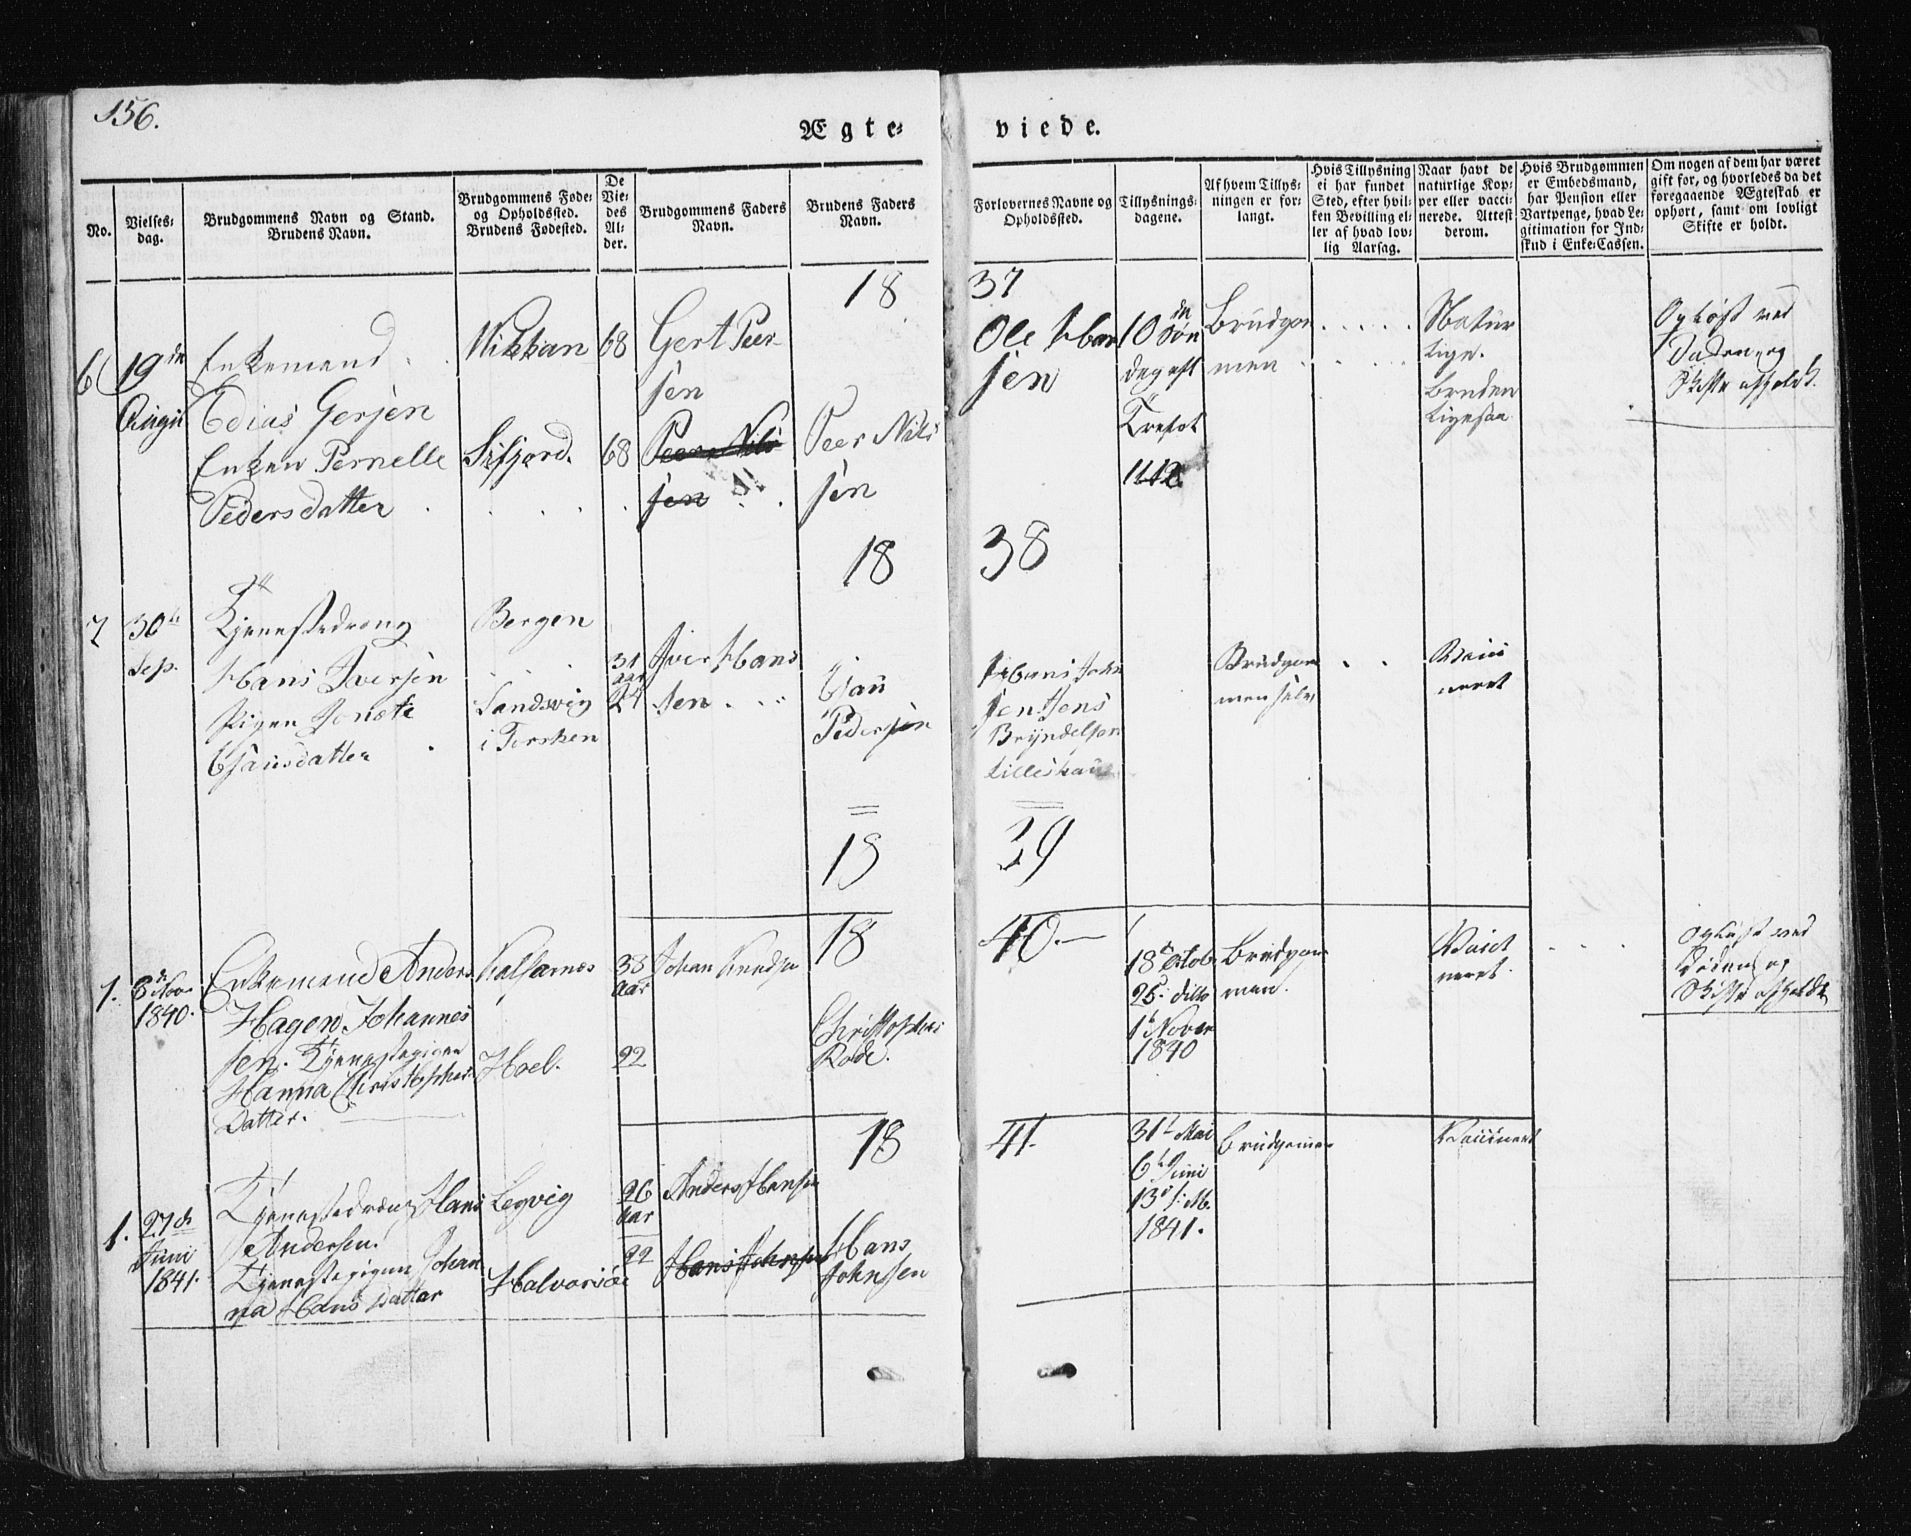 156.
Ægte-
viede.
No.
Vielses-
dag.
Brudgommens Navn og Stand.
Brudens Navn.
Brudgommens Føde-
og Opholdssted.
Brudens Fødested.
De
Vie-
des
Al-
der.
Brudgommens Faders
Navn.
Brudens Faders
Navn.
Forlovernes Navne og
Opholdssted.
Tillysnings-
dagene.
Af hvem Tillys-
ningen er for-
langt.
Hvis Tillysning
ei har fundet
Sted, efter hvil-
ken Bevilling el-
ler af hvad lov-
lig Aarsag.
Naar havt de
naturlige Kop-
per eller vacci-
nerede. Attest
derom.
Hvis Brudgommen
er Embedsmand,
har Pension eller
Vartpenge, hvad Le-
gitimation for Ind-
skud i Enke-Cassen.
Om nogen af dem har været
gift før, og hvorledes da det
foregaaende Ægteskab er
ophørt, samt om lovligt
Skifte er holdt.
18
37
6
19de
Enkemand
Edias Gerjen
Enken Pernelle
Pedersdatter
Sifjord.
68
68
Gert Peer
sen
Peer Nils
sen
Peer Nils
sen
Ole Han
sen
10de Søn
dag eft
Trefot
11 12
Brudgom
men
Natur
lige.
Bruden
ligesaa
Ophøst ved
Døden og
Skifte afholdt.
18
38
7
30te
Sep.
Tjenestedreng
Hans Iversen
Pigen Jonete
Bergen
Sandsvig
i Torsken
31
aar
24
Iver Hans
sen
Pedersen
Hans Joh
sen Jens
Bryndelsen
Brudgom
men selv
Vacci
neret
18
39
18
40.
1.
8de Nov.
1840.
Enkemand Anders
Hagen Johannes
sen. Tjenestepigen
Hanna Christopher
Datter.
Kalfarnes
Hoel.
38
Aar
22
Johan Knudsen
Christopher
Rode.
18de Octob.
25. ditto
1te Novbr
1840
Brudgom
men.
Vacci
neret.
Ophøst ved
Døden og
Skifte afholdt
18
41.
1.
27de
Juni
1841.
Tjenestedreng Hans
Andersen.
Tjenestepigen Johan
na Hans Datter
Legvig
Halvarsøe
26
Aar
22
Anders Hansen
Hans Johnsen
Hans
Johnsen
31te Mai
6te Juni
13de
1841.
Brudgommen
Vaccineret